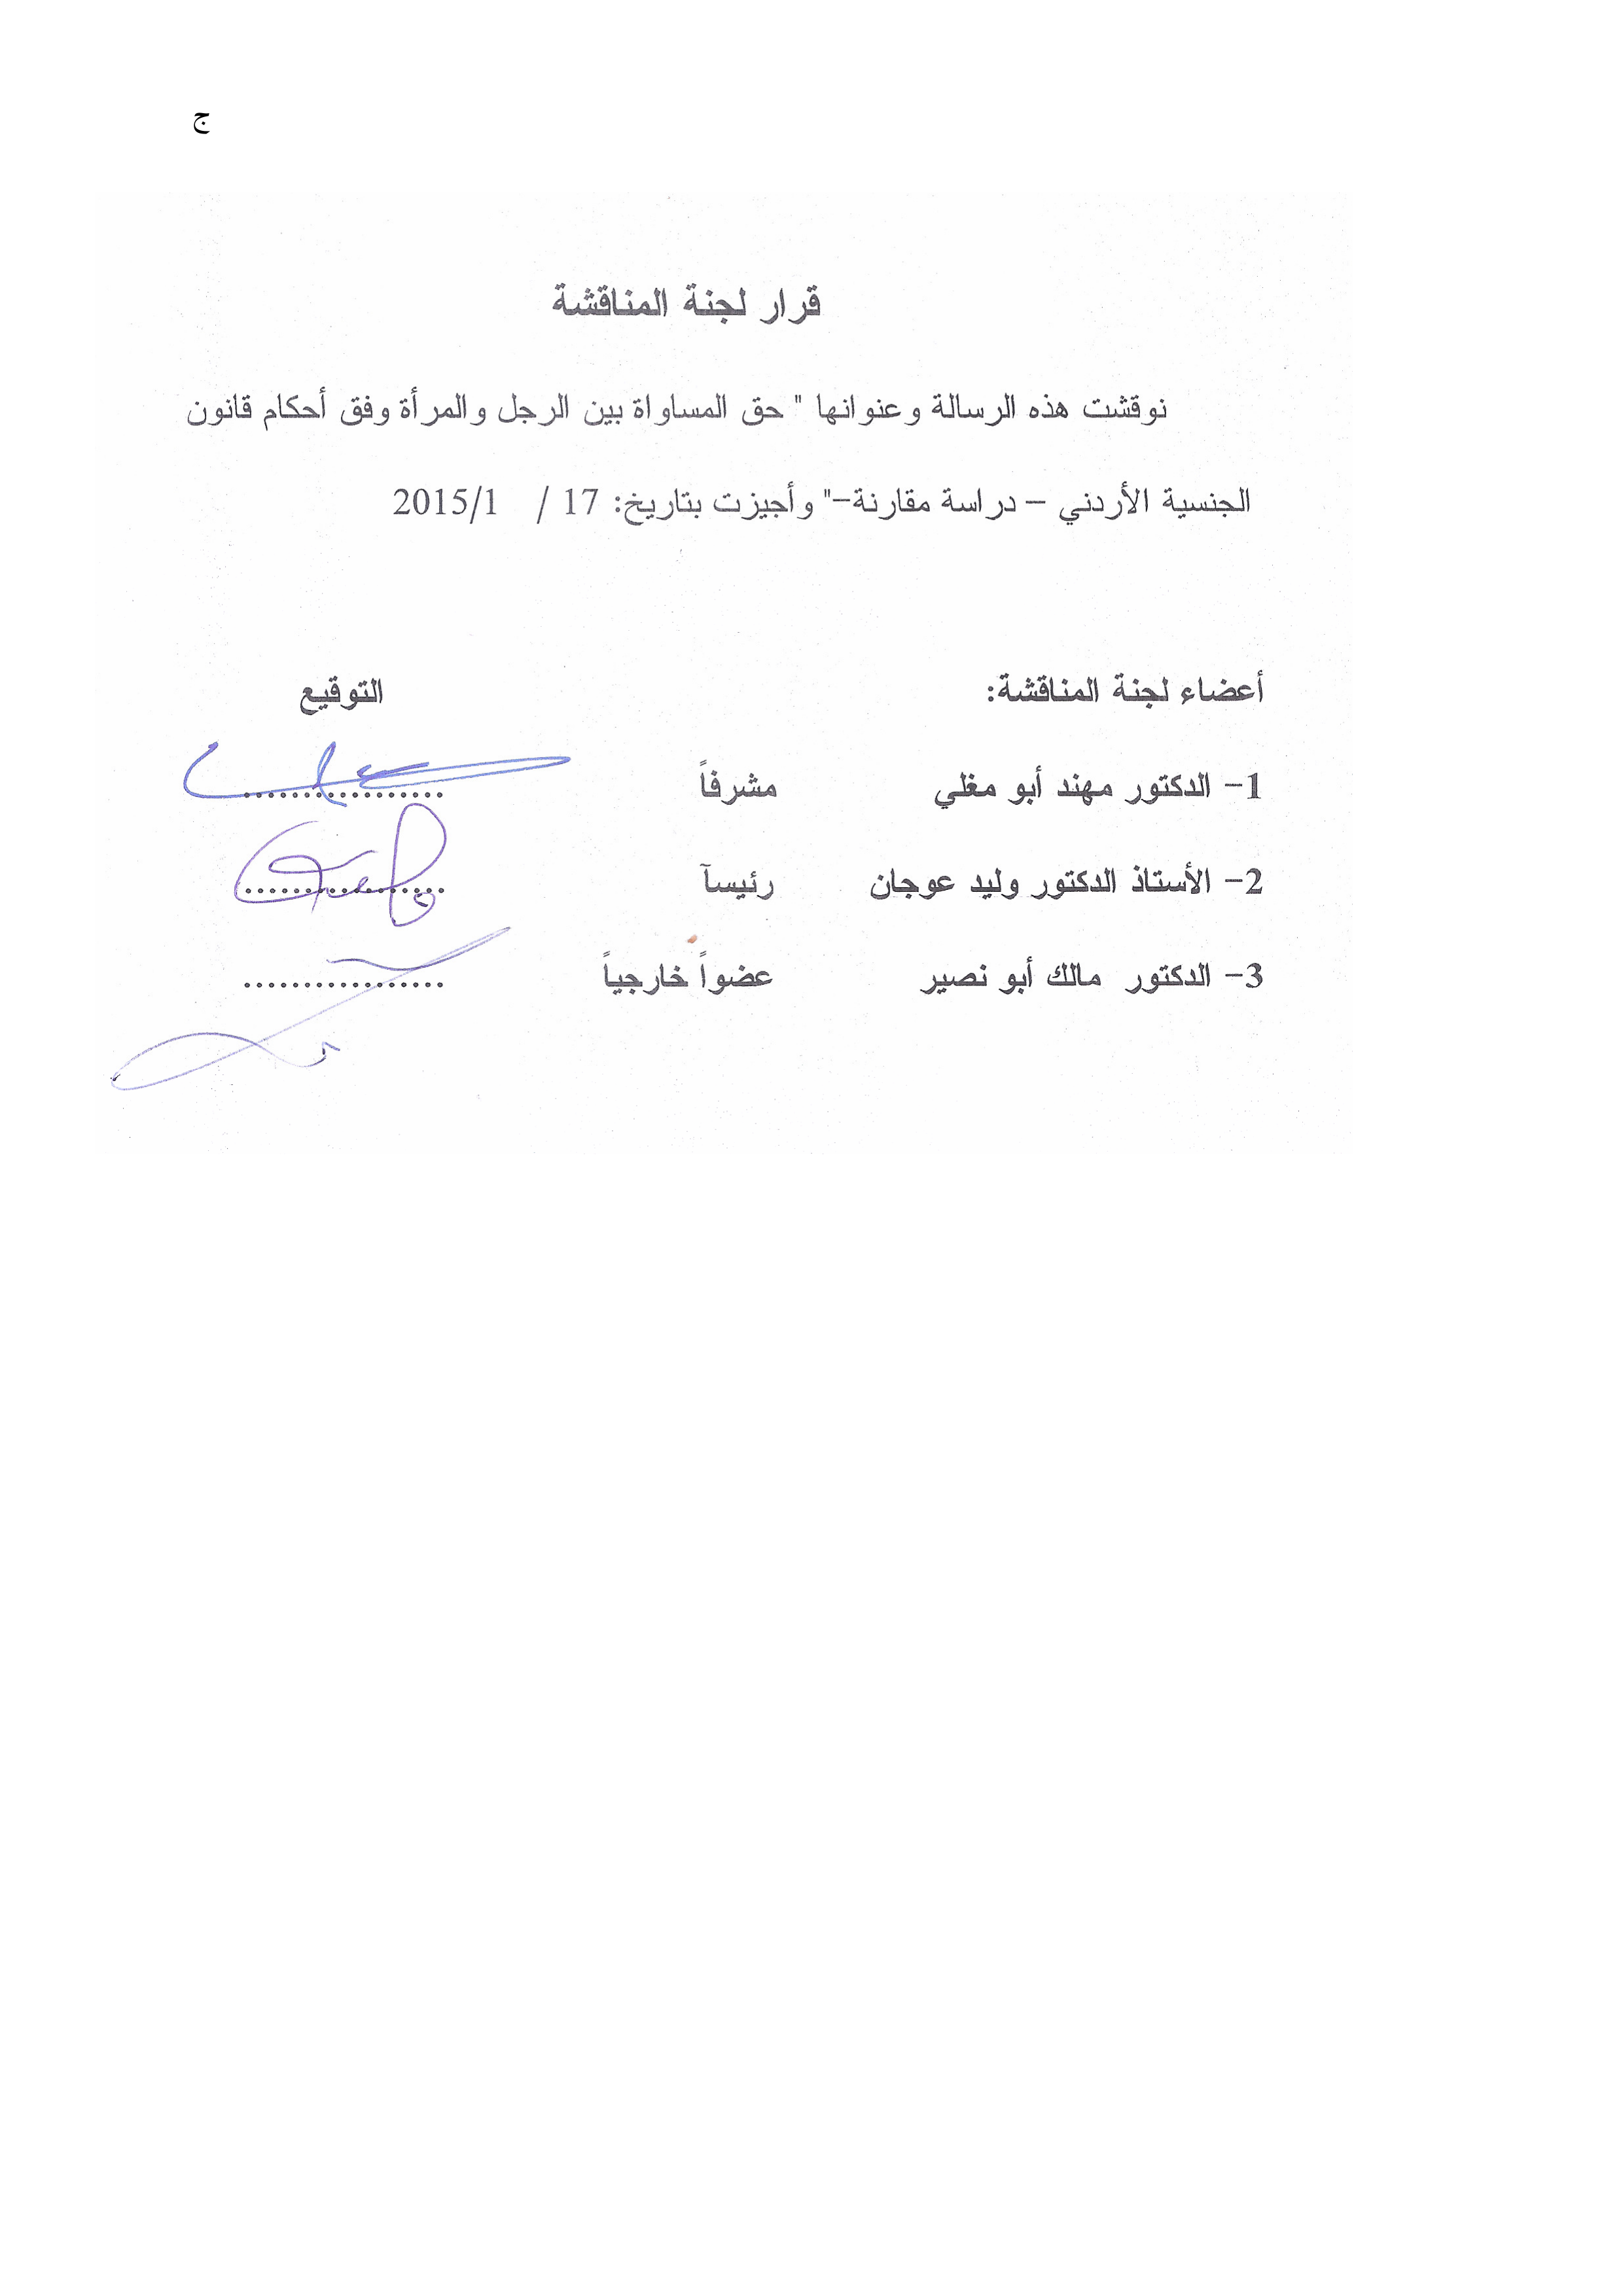 ج
قرار لجنة المناقشة
نوقشت هذه الرسالة وعنوانها " حق المساواة بين الرجل والمرأة وفق أحكام قانون
الجنسية الأردني – دراسة مقارنة–" وأجيزت بتاريخ: 17 / 2015/1
أعضاء لجنة المناقشة: التوقيع
1– الدكتور مهند أبو مغلي مشرفاً .................
2– الأستاذ الدكتور وليد عوجان رئيسآ .................
3– الدكتور مالك أبو نصير عضواً خارجياً .................